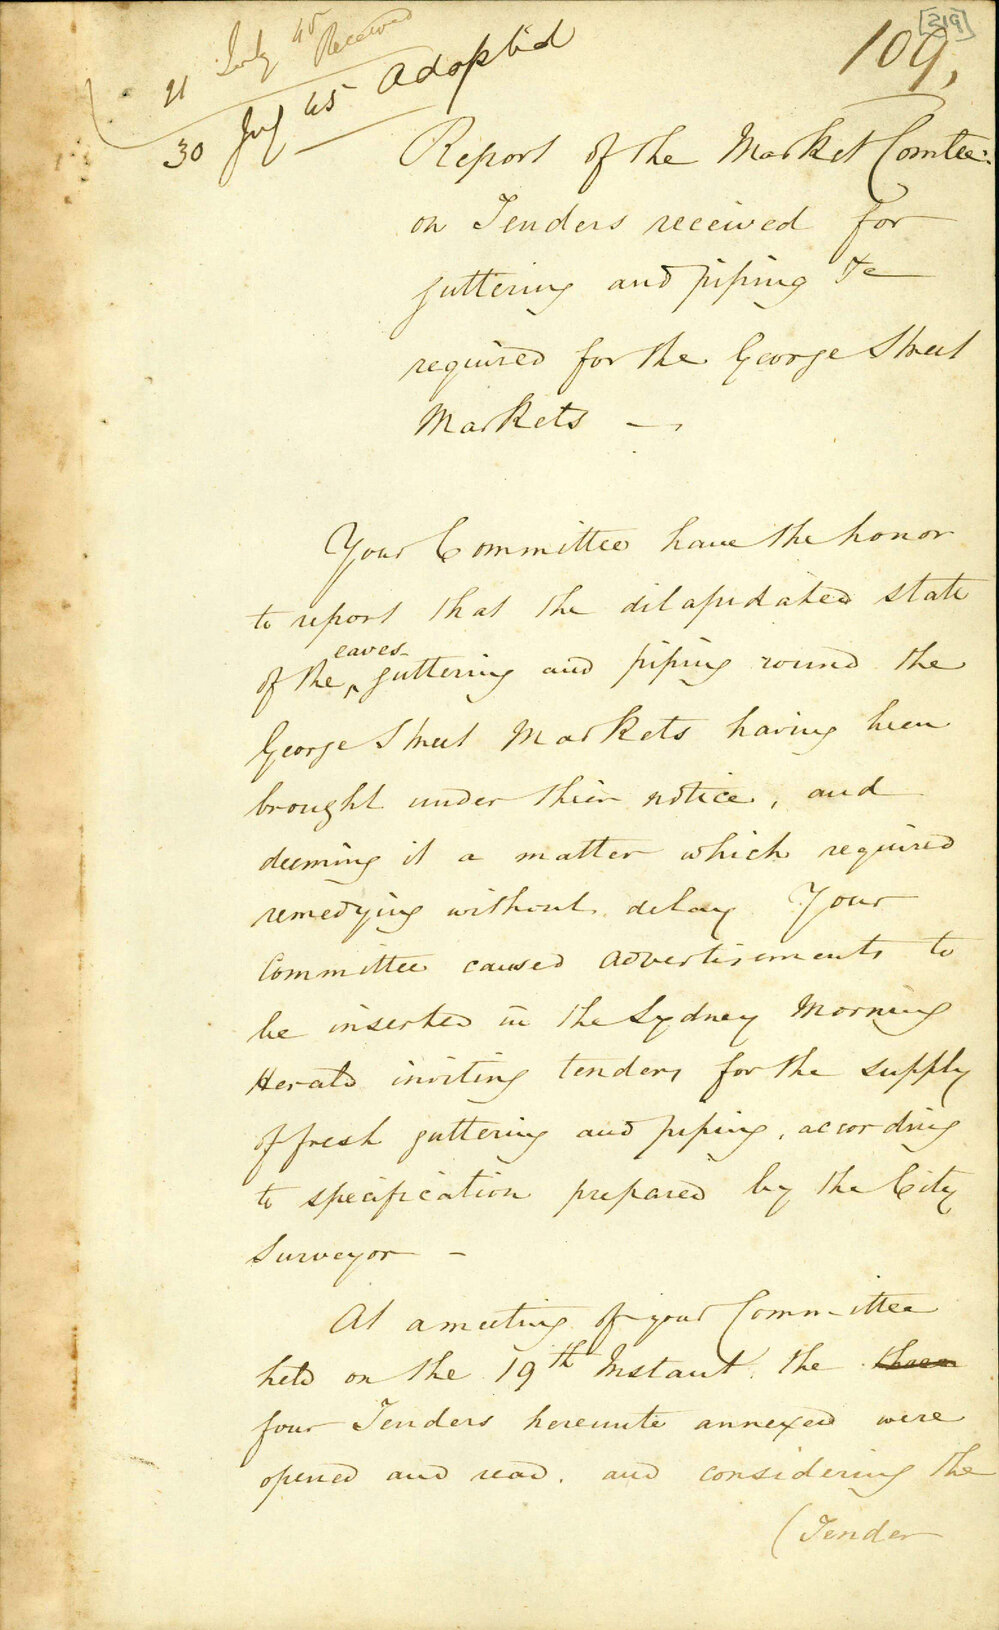 [219]
109,
21 July 45 Received
30 July 45 Adopted
Report of the Market Comtee:
on Tenders received for
guttering and piping &c
required for the George Street
Markets —
Your Committee have the honor
to report that the dilapidated state
eaves-
of the guttering and piping round the
George Street Markets having been
brought under their notice, and
deeming it a matter which required
remedying without delay Your
Committee caused advertisements to
be inserted in the Sydney Morning
Herald inviting tenders for the supply
of fresh guttering and piping, according
to specification prepared by the City
Surveyor —
At a meeting of your Committee
held on the 19th Instant, the three
four Tenders hereunto annexed were
opened and read, and considering the
(Tender